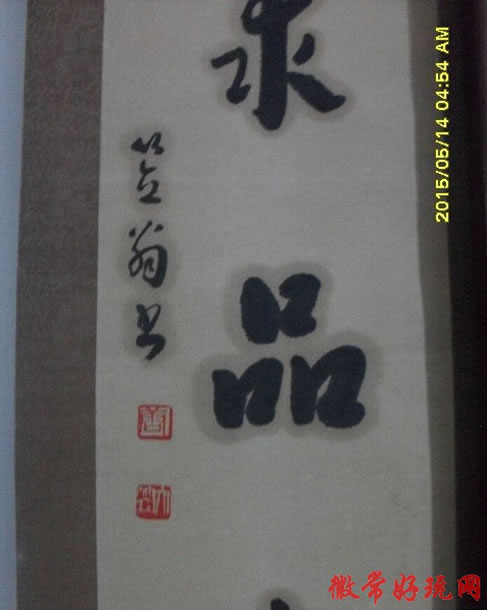 求品
笠翁书
2015/05/14 04:54 AM
徽常好玩网